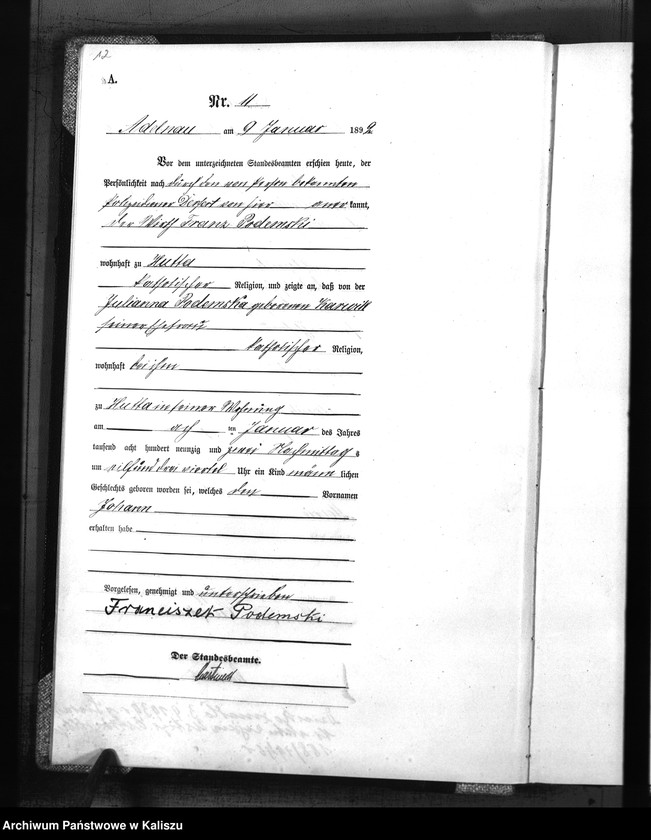 12
A.
Nr. 11
Adelnau am 9 Januar 1892
Vor dem unterzeichneten Standesbeamten erschien heute, der
Persönlichkeit nach durch den von Person bekannten
Polizeidiener von hier anerkannt,
der Wirth Franz Podemski
wohnhaft zu Hutta
katholischer Religion, und zeigte an, daß von der
Julianna Podemska geborenen
seiner Ehefrau
katholischer Religion,
wohnhaft bei ihm
zu Hutta in seiner Wohnung
am ach ten Januar des Jahres
tausend acht hundert neunzig und zwei Nachmittag s
um elf und drei viertel Uhr ein Kind männ lichen
Geschlechts geboren worden sei, welches den Vornamen
Johann
erhalten habe
Vorgelesen, genehmigt und unterschrieben
Franciszek Podemski
Der Standesbeamte.
Archiwum Państwowe w Kaliszu